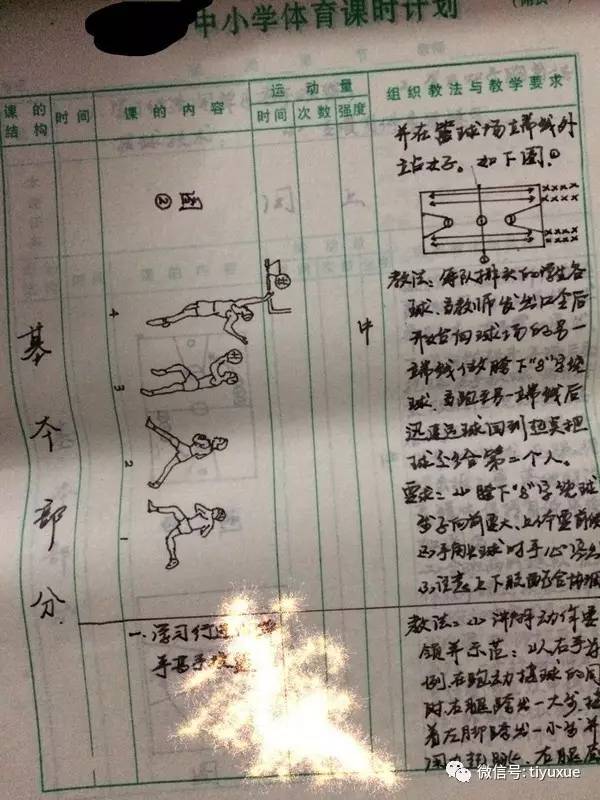 中小学体育课时计划
课的结构
时间
课的内容
运动量
时间
次数
强度
组织教法与教学要求
基本部分
② 图
4
3
2
1
中
并在篮球场端线外
站好。如下图:
×××××
×××××
×××××
×××××
教法:每队排头的学生各
球,当教师发出口令后
开始向球场的另一
端线做胯下"8"字绕
球,当跑至另一端线后
迅速运球回到起点把
球交给第二个人。
要求:⑴胯下"8"字绕球
步子向前要大,上体要前倾
⑶注意上下肢配合协调
一、学习行进
手高手投篮
教法:⑴讲解动作要
领并示范:以右手为
例,在跑动接球的同
时右腿跨出一大步,接
着左脚跨出一小步并
用力
微信号: tiyuxue